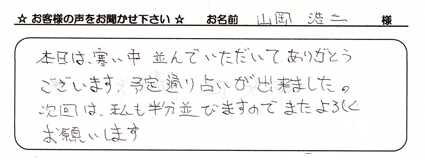 ☆ お客様の声をお聞かせ下さい ☆ お名前 山岡 浩二 様
本日は、寒い中 並んでいただいて ありがとう
ございます。予定通り占いが出来ました。
次回は、私も半分並びますので またよろしく
お願いします